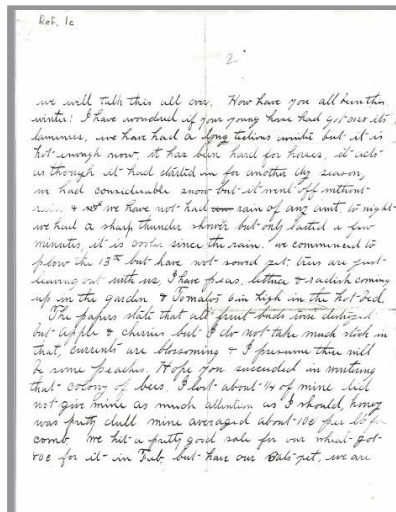 Ref. 1c
2
we will talk this all over. How have you all been this
winter? I have wondered if your young horse had got over its
lameness, we have had a long tedious winter but it is
hot enough now, it has been hard for horses, it acts
as though it had started in for another dry season,
we had considerable snow but it went off without
rain & we have not had rain of any amt. to night
we had a sharp thunder shower but only lasted a few
minutes, it is cooler since the rain. we commenced to
plow the 13th but have not sowed yet. trees are just
leaving out with us, I have peas, lettuce & radish coming
up in the garden & Tomatos 6 in high in the hot bed.
The papers state that all fruit buds were destroyed
but apple & cherries but I do not take much stock in
that, currents are blossoming & I presume there will
be some peaches. Hope you succeeded in wintering
that colony of bees. I lost about 1/4 of mine did
not give mine as much attention as I should, honey
was pretty dull mine averaged about 10¢ per lb for
comb. We hit a pretty good sale for our wheat got
¢ for it in Feb. but have our Oats yet, we are